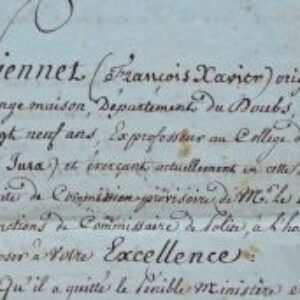 iennet (François Xavier) ori
nge maison, Département du Doubs,
gt neuf ans, Exprofesseur au Collège d
Jura) et exerçant actuellement en cette
te de Commission provisoire de Mr. le
nctions de Commissaire de Police, a l'ho
oser à Votre Excellence:
Qu'il a quitté le pénible Ministère